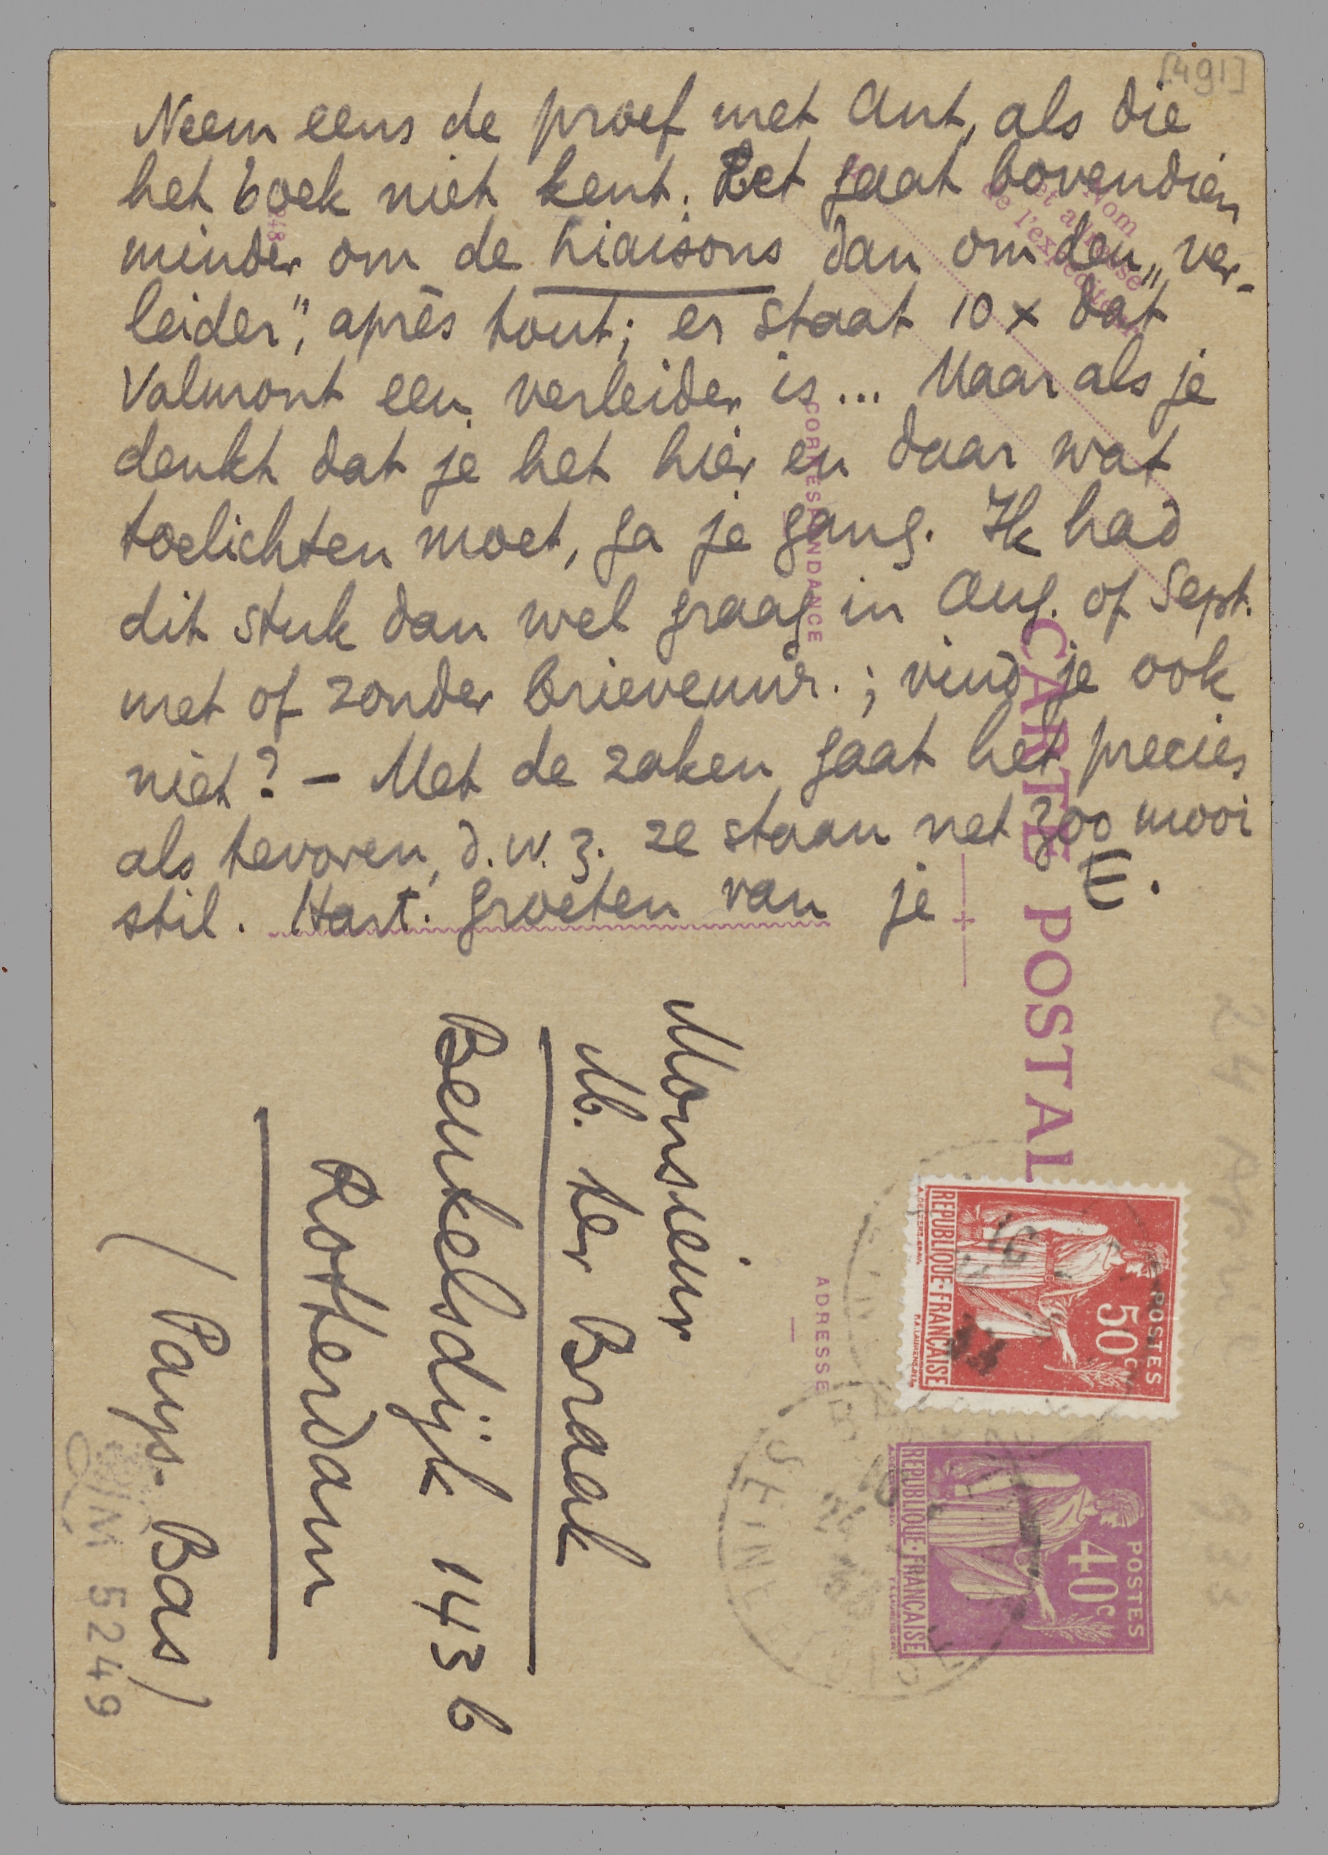 [491]
Neem eens de proef met Ant, als die
het boek niet kent. Het gaat bovendien
minder om de Liaisons dan om den „ver-
leider”, après tout; er staat 10 x dat
Valmont een verleider is... Maar als je
denkt dat je het hier en daar wat
toelichten moet, ga je gang. Ik had
dit stuk dan wel graag in Aug. of Sept.
met of zonder brievennr.; vind je ook
niet? – Met de zaken gaat het precies
als tevoren, d.w.z. ze staan net zoo mooi
stil. Hart. groeten van je E.
Nom
et adresse
de l'expéditeur
CORRESPONDANCE
CARTE POSTALE
ADRESSE
Monsieur
M. ter Braak
Beukelsdijk 143 b
Rotterdam
(Pays-Bas)
POSTES
50c
REPUBLIQUE·FRANÇAISE
POSTES
40c
REPUBLIQUE·FRANÇAISE
SEINE
24 April 1933
5249